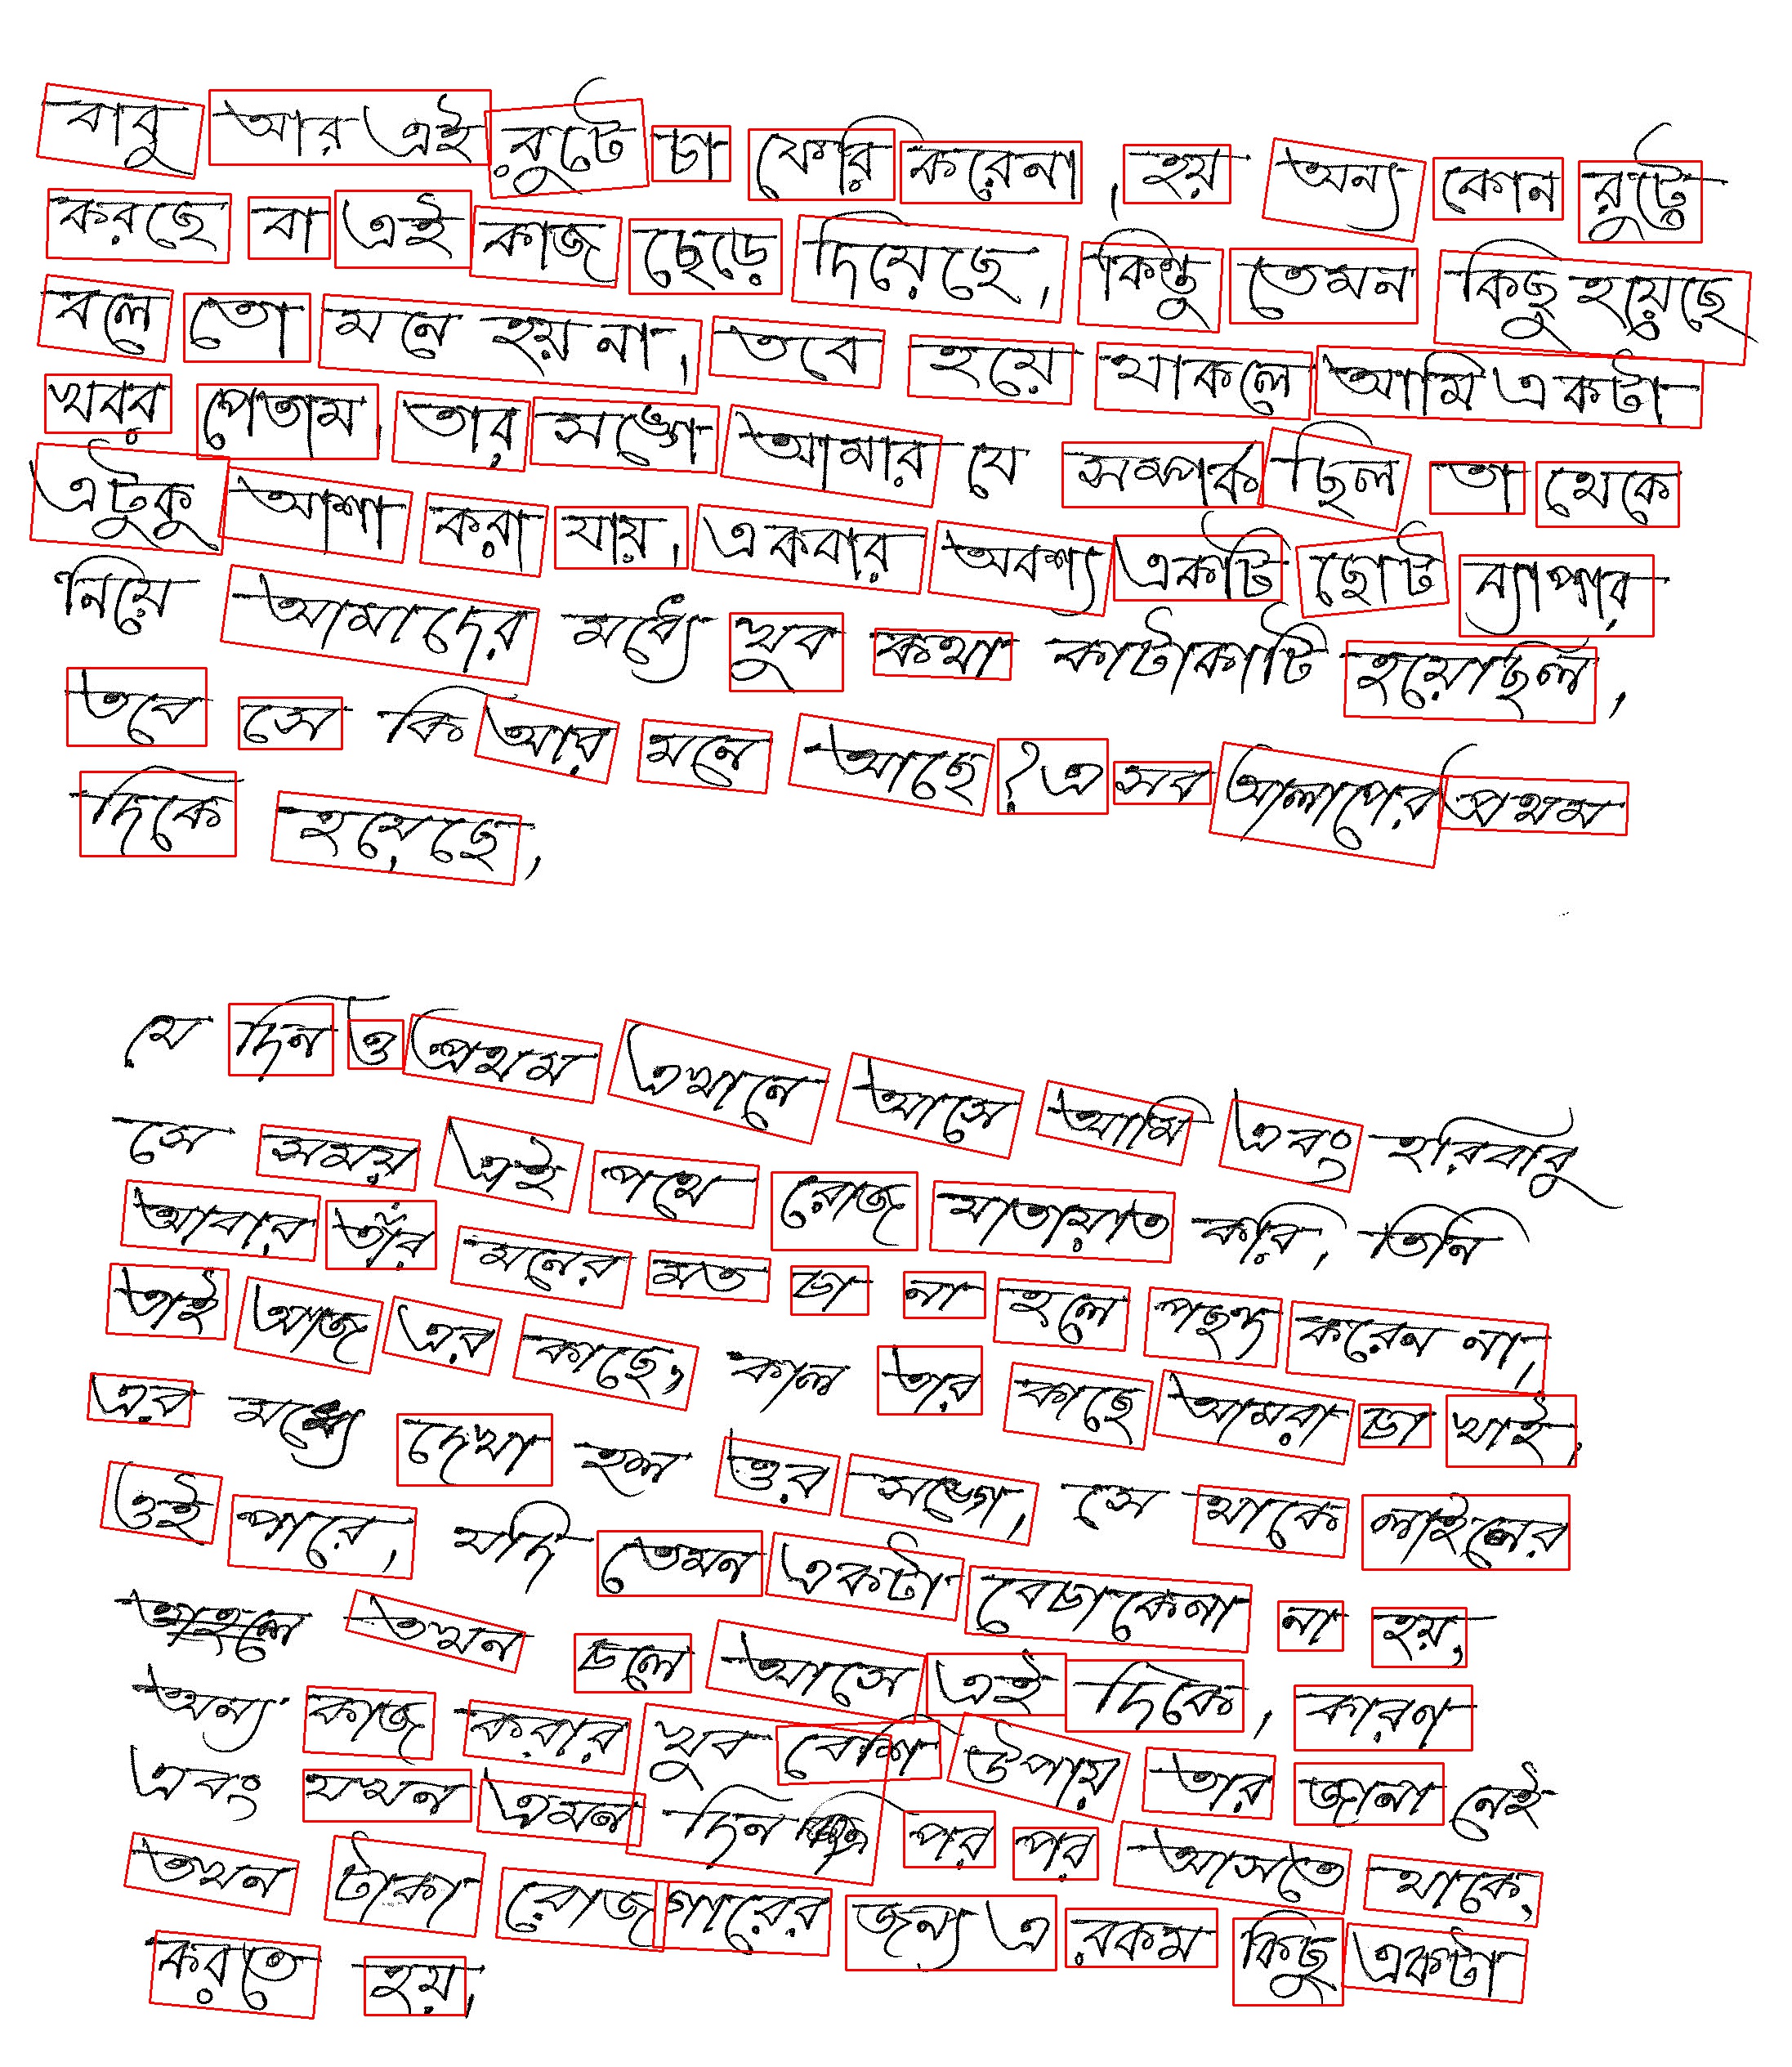 বাবু আর এই রুটে চা ফেরি করেনা, হয় অন্য কোন রুটে
করছে বা এই কাজ ছেড়ে দিয়েছে, কিন্তু তেমন কিছু হয়েছে
বলে তো মনে হয় না, তবে হয়ে থাকলে আমি একটা
খবর পেতাম, তার সঙ্গে আমার যে সম্পর্ক ছিল তা থেকে
এটুকু আশা করা যায়, একবার অবশ্য একটি ছোট ব্যাপার
নিয়ে আমাদের মধ্যে খুব কথা কাটাকাটি হয়েছিল,
তবে সে কি আর মনে আছে? এ সব আলাপের প্রথম
দিকে হয়েছে,
যে দিন ও প্রথম এখানে আসে আমি এবং হরিবাবু
সে সময় এই পথে রোজ যাতায়াত করি, তিনি
আবার তাঁর মনের মত চা না হলে পছন্দ করেন না,
তাই আজ এর কাছে, কাল তার কাছে আমরা চা খাই,
এর মধ্যে দেখা হল ওর সঙ্গে, সে থাকে লাইনের
ওই পারে, যদি তেমন একটা বেচাকেনা না হয়,
তাহলে তখন চলে আসে এই দিকে, কারণ
অন্য কাজ করার খুব বেশি উপায় তার জানা নেই
এবং যখন এমন দিন পর পর আসতে থাকে,
তখন টাকা রোজগারের জন্য এ রকম কিছু একটা
করতে হয়,